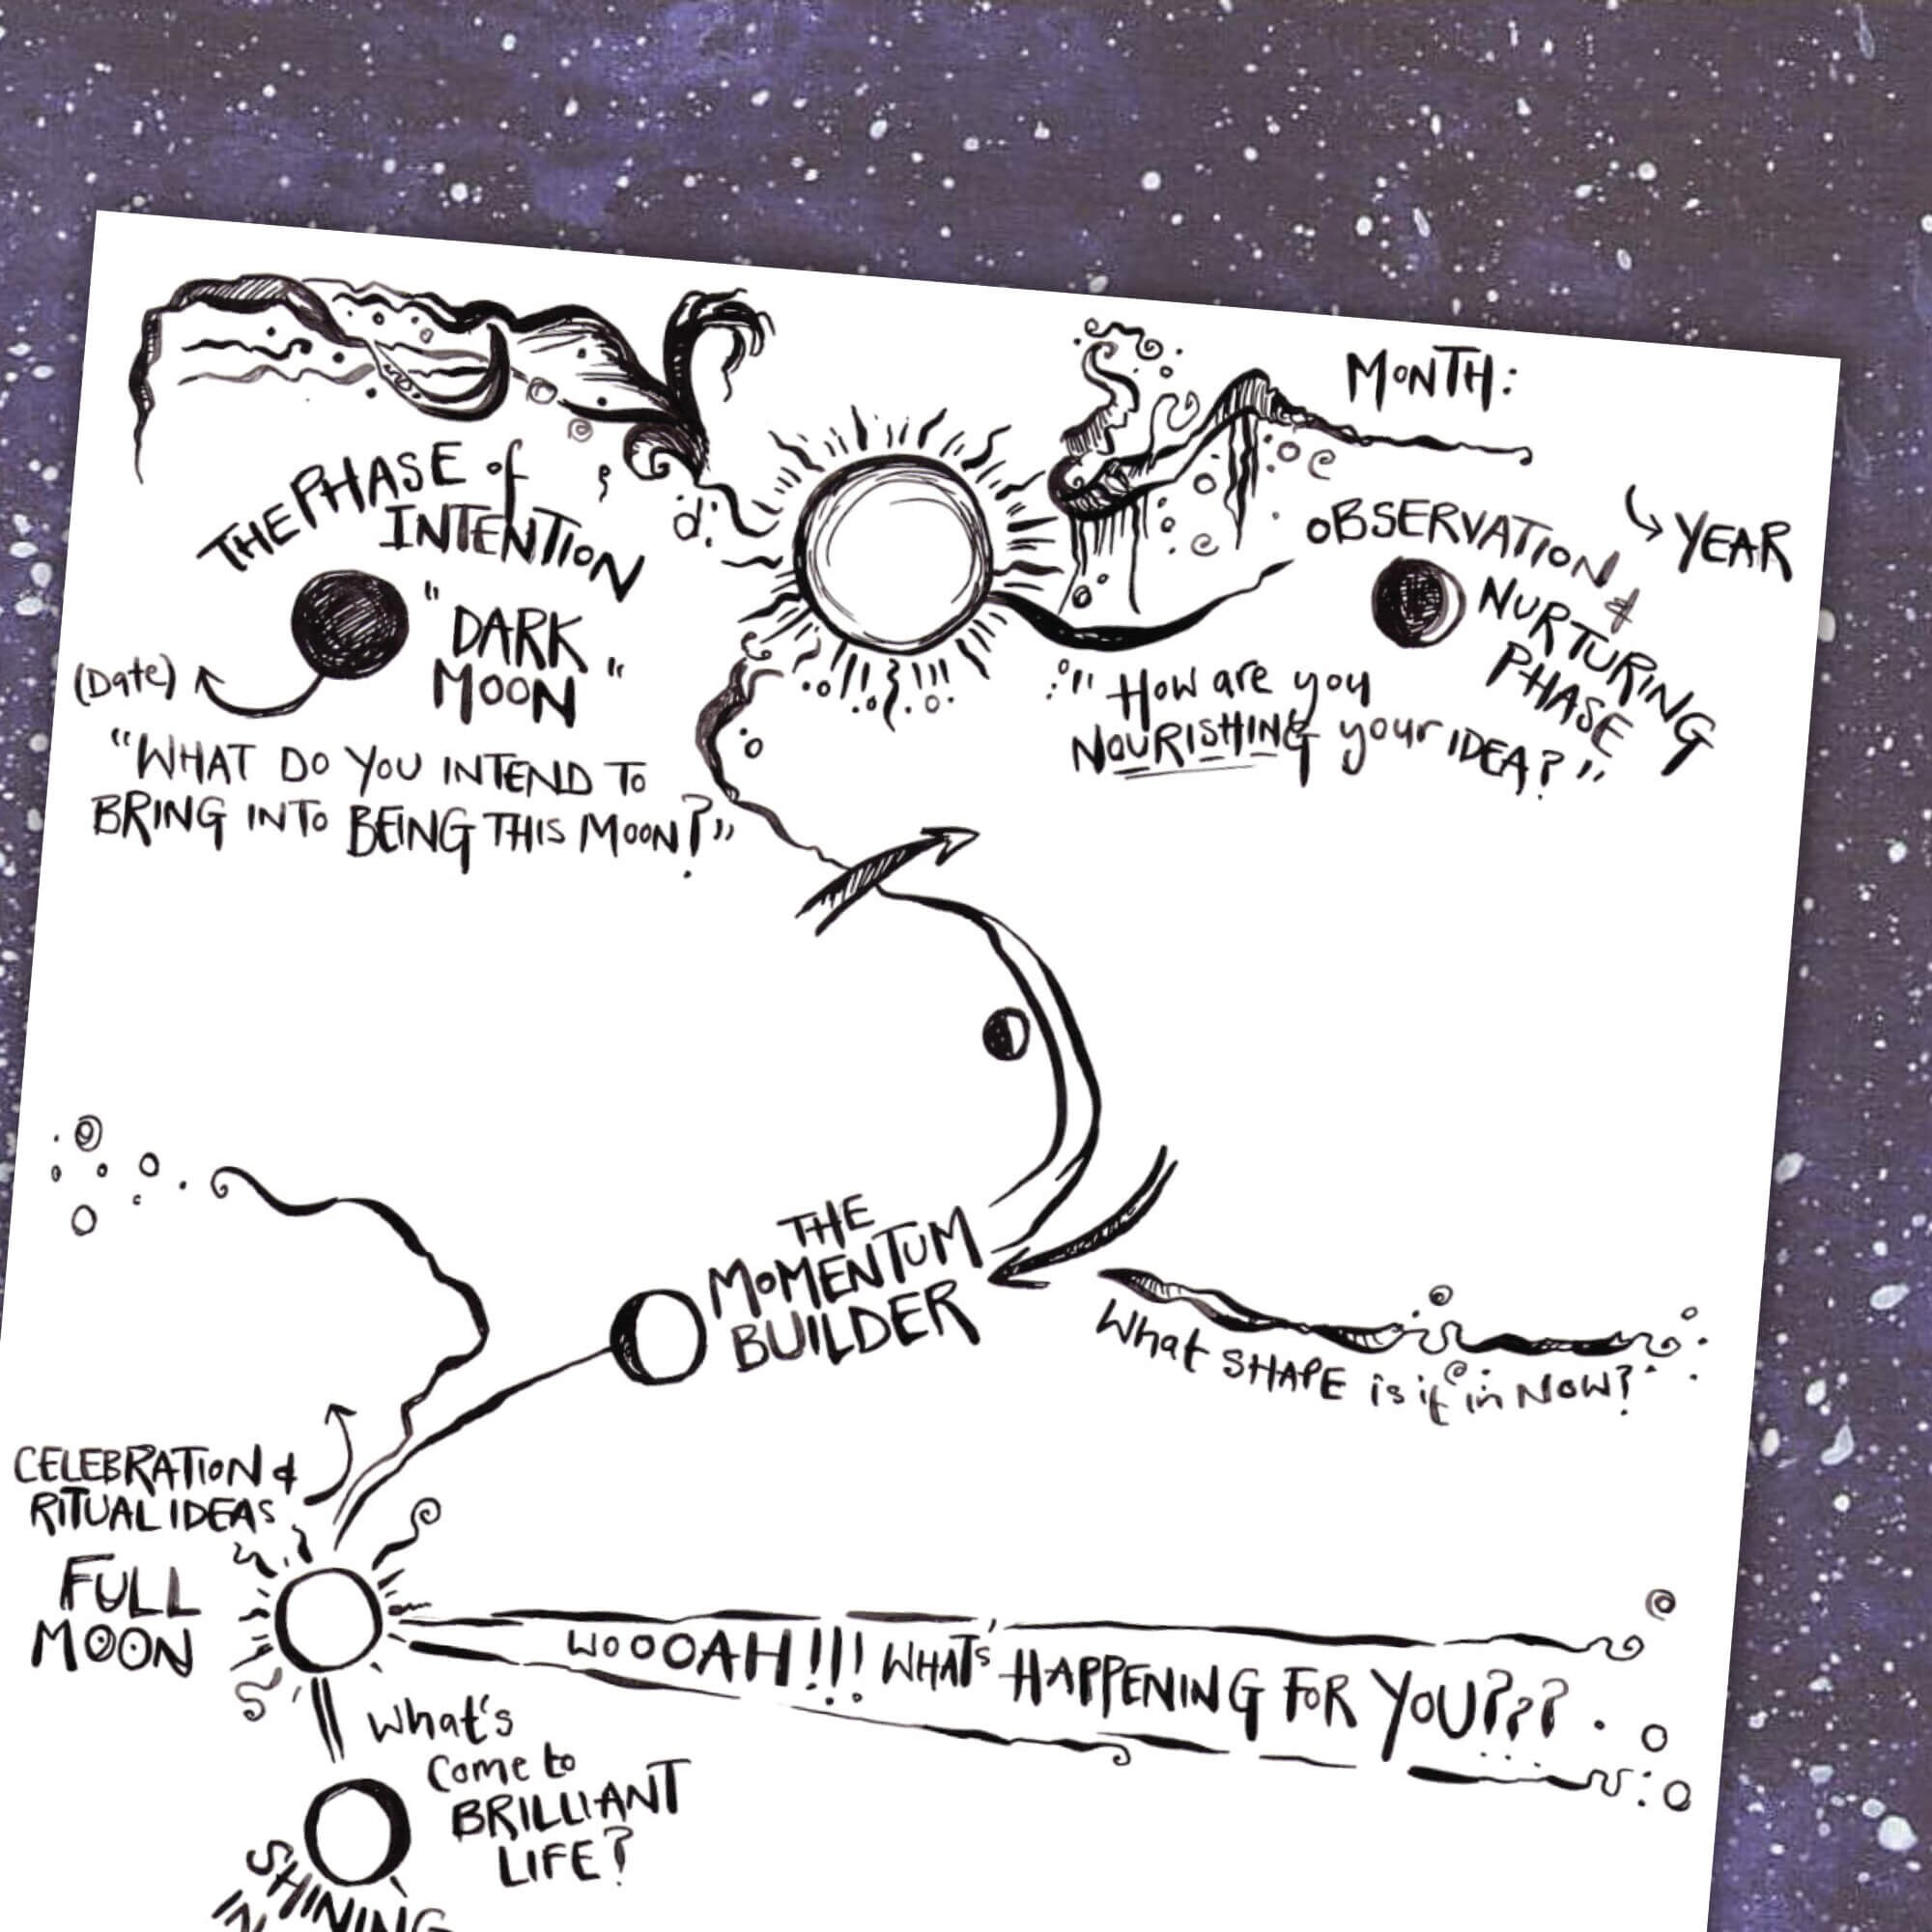 MONTH:
YEAR
THE PHASE of
INTENTION
"DARK
MOON"
(Date)
"WHAT DO YOU INTEND TO
BRING INTO BEING THIS MOON?"
OBSERVATION &
NURTURING
PHASE
"How are you
NOURISHING your IDEA?"
THE
MOMENTUM
BUILDER
What SHAPE is it in NOW?
CELEBRATION &
RITUAL IDEAS
FULL
MOON
WOOOAH!!! WHAT'S HAPPENING FOR YOU???
What's
Come to
BRILLIANT
LIFE?
SHINING
IN